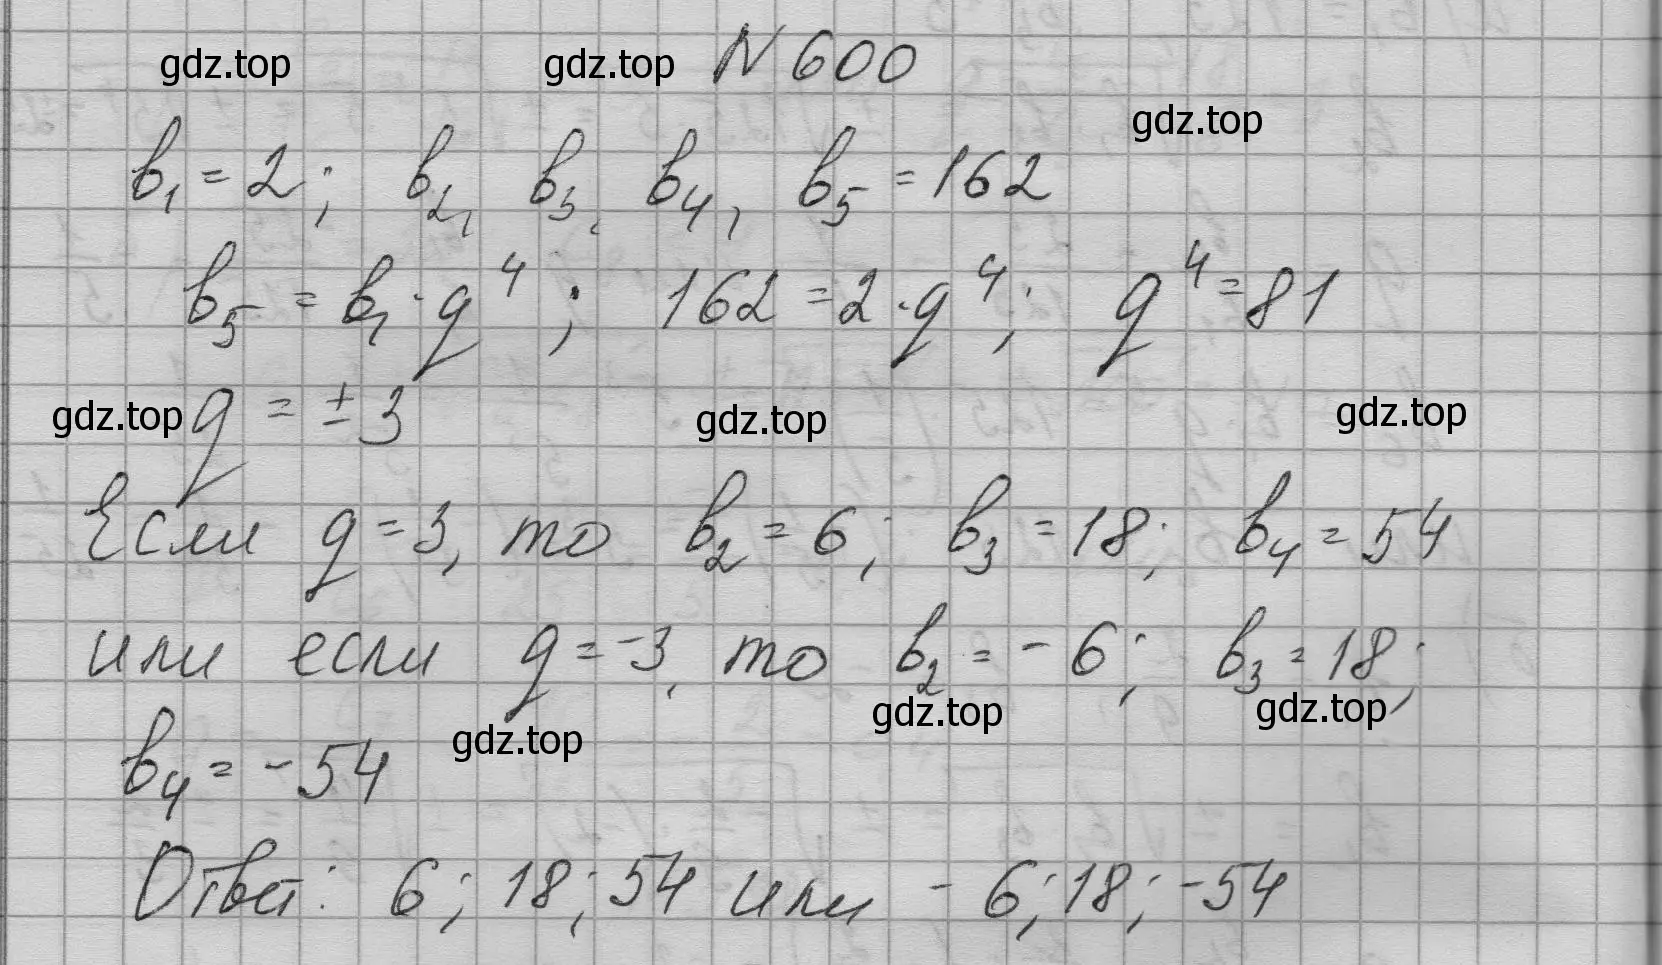 gdz.top gdz.top N 600
gdz.top
b₁ = 2; b₂, b₃, b₄, b₅ = 162
b₅ = b₁ · q⁴; 162 = 2 · q⁴; q⁴ = 81
gdz.top q = ± 3 gdz.top gdz.top
Если q = 3, то b₂ = 6; b₃ = 18; b₄ = 54
или если q = -3, то b₂ = - 6; b₃ = 18;
gdz.top gdz.top gdz.top
b₄ = - 54
Ответ: 6; 18; 54 или - 6; 18; -54